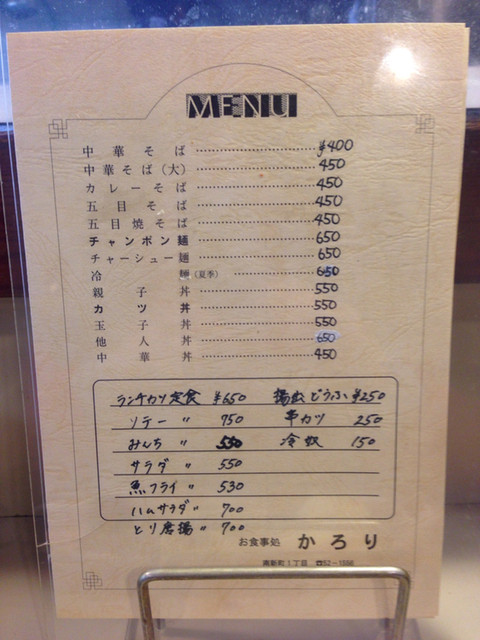 MENU
中華そば ¥400
中華そば(大) 450
カレーそば 450
五目そば 450
五目焼そば 450
チャンポン麺 650
チャーシュー麺 650
冷麺(夏季) 650
親子丼 550
カツ丼 550
玉子丼 550
他人丼 650
中華丼 450
ランチカツ定食 ¥650 揚奴どうふ ¥250
ソテー 〃 750 串カツ 250
みんち 〃 550 冷奴 150
サラダ 〃 550
魚フライ 〃 530
ハムサラダ 〃 700
とり唐揚 〃 700
お食事処 かろり
南新町1丁目 ☎52-1556